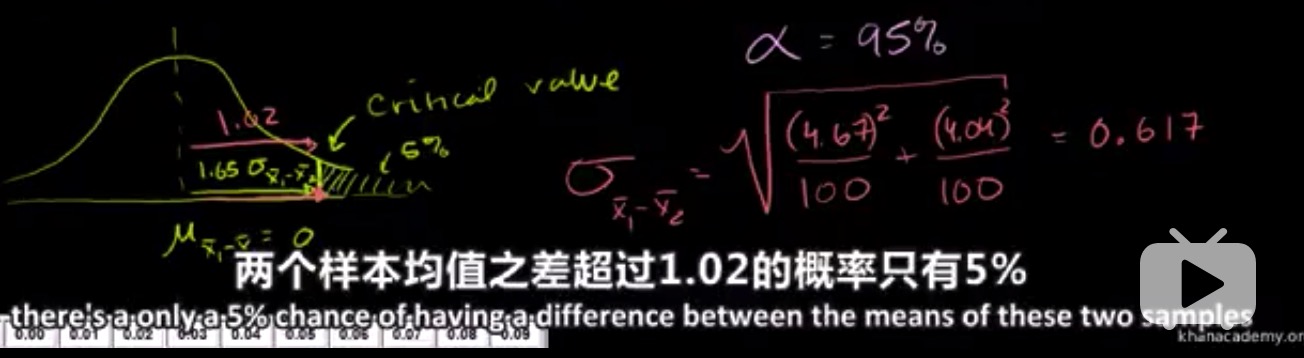 α = 95%
critical value
1.02
5%
1.65 σx̄₁-x̄₂
σx̄₁-x̄₂ = √((4.67)²/100 + (4.04)²/100) = 0.617
μx̄₁-x̄₂ = 0
两个样本均值之差超过1.02的概率只有5%
there's a only a 5% chance of having a difference between the means of these two samples
0.00 0.01 0.02 0.03 0.04 0.05 0.06 0.07 0.08 0.09
khanacademy.or